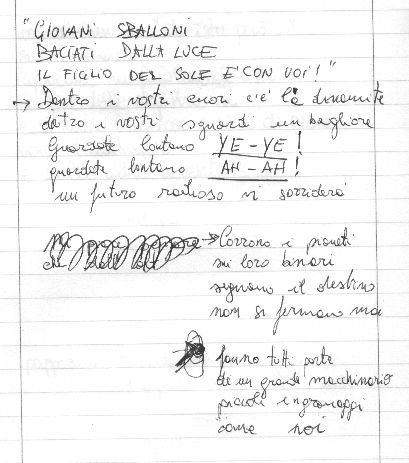 "GIOVANI SBALLONI
BACIATI DALLA LUCE
IL FIGLIO DEL SOLE E' CON VOI!"
→ Dentro i vostri cuori c'è la dinamite
dietro i vostri sguardi un bagliore
Guardate lontano YE-YE!
guardate lontano AH-AH!
un futuro radioso vi sorriderà
che
→ Corrono i pianeti
sui loro binari
segnano il destino
non si fermano mai
fanno tutti parte
di un grande macchinario
piccoli ingranaggi
come noi